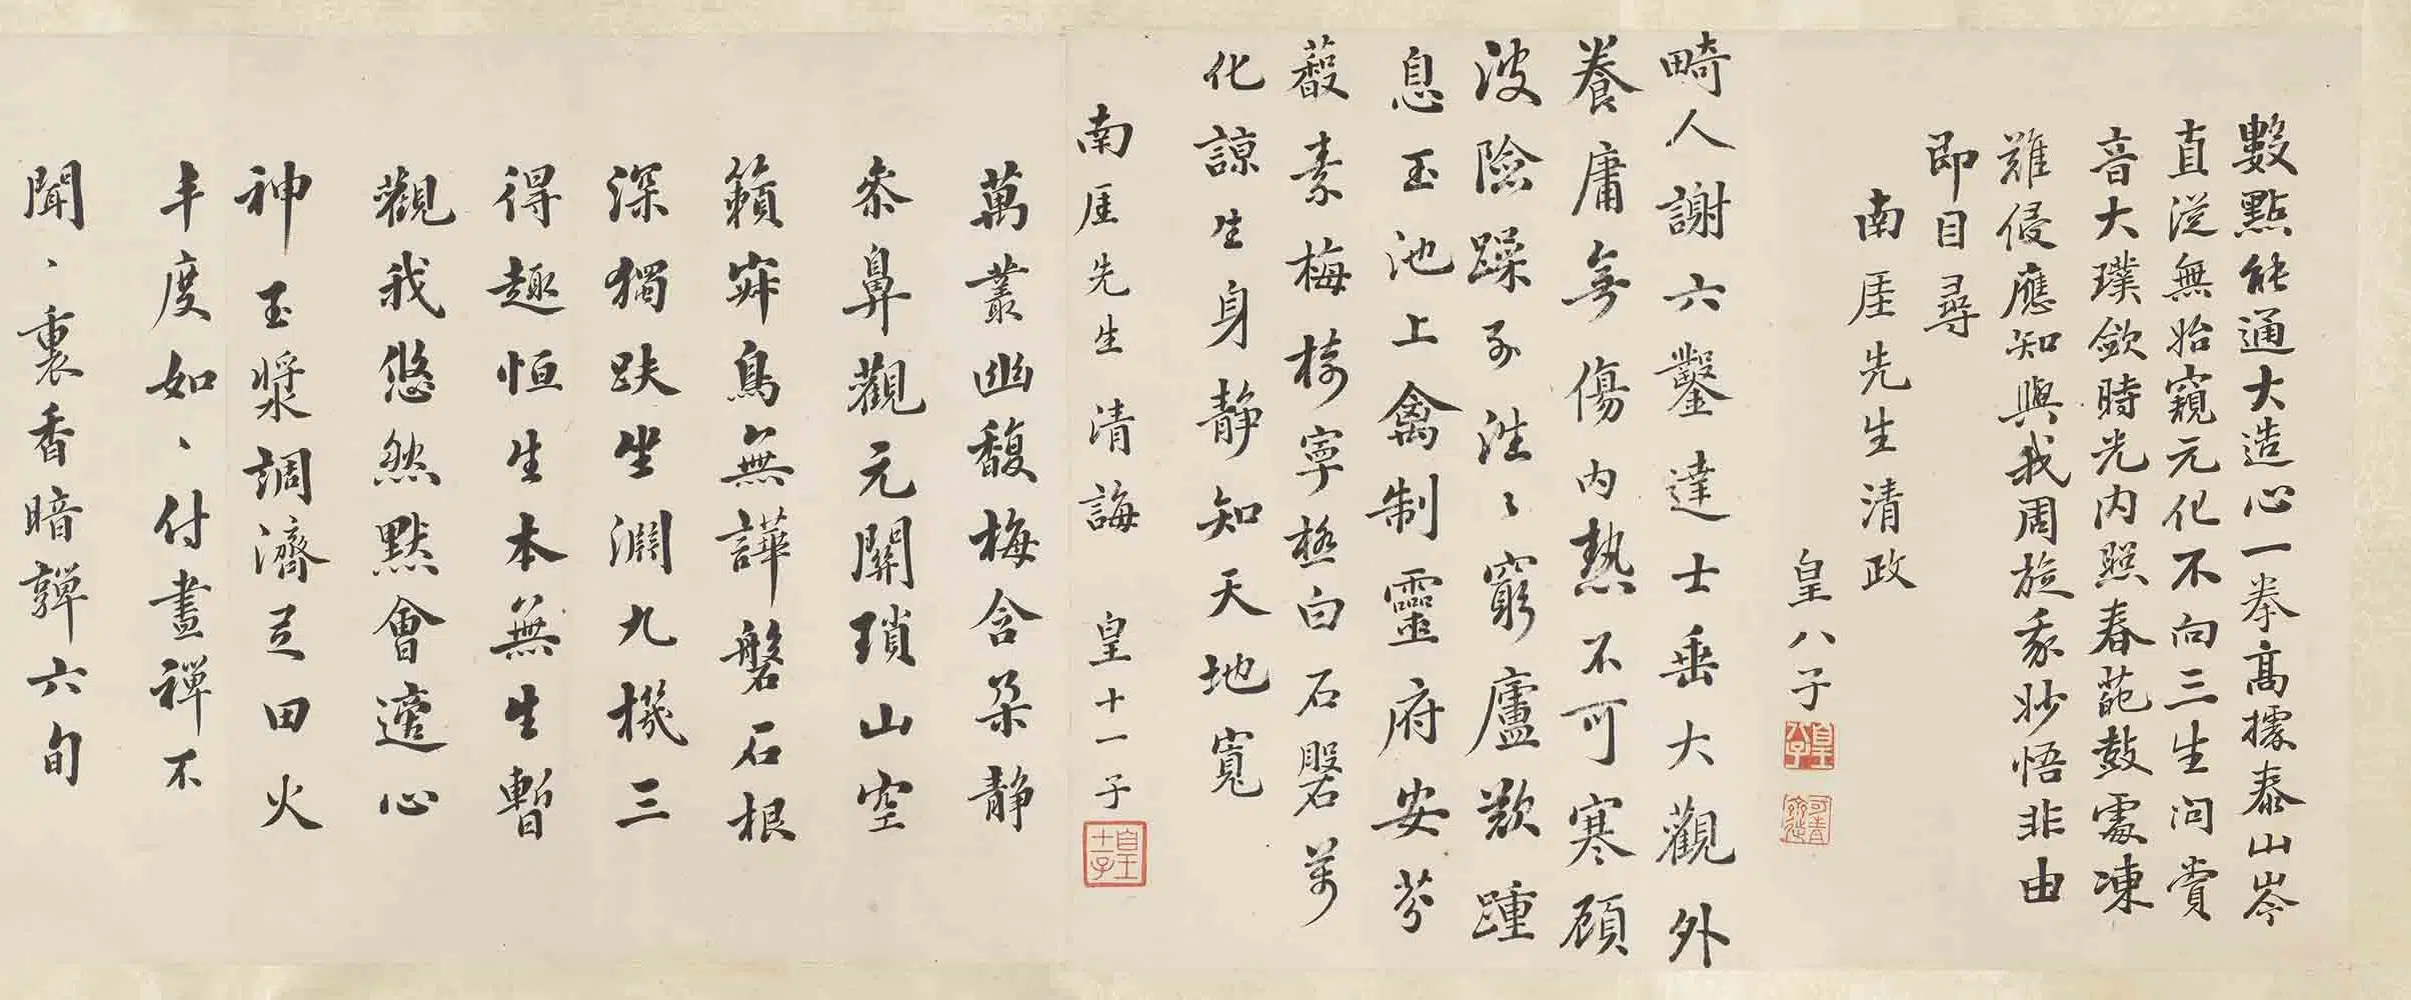 數點能通大造心一拳高據泰山岑
直從無始窺元化不向三生問賞
音大璞斂時光內照春葩鼓處凍
難侵應知與我周旋豙妙悟非由
即目尋
南厓先生清政
皇八子
皇八子
畸人謝六鑿達士垂大觀外
養庸無傷內熱不可寒頎
波險躁子浩〻窮廬歎踵
息玉池上禽制靈府安芬
馥素梅椅寧極白石磐萬
化諒生身靜知天地寬
南厓先生清誨 皇十一子
皇十一子
萬叢幽馥梅含朵靜
叅鼻觀元關瑣山空
籟寂鳥無譁磐石根
深獨趺坐淵九機三
得趣恒生本無生暫
觀我悠然默會適心
神玉漿調濟足田火
丰度如〻付畫禪不
聞〻裏香暗嚲六旬